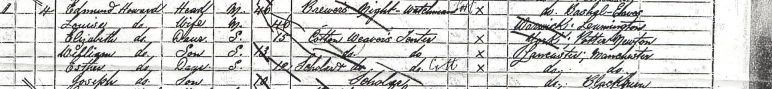 4 Edmund Howard Head M. 46 Brewer's Night-Watchman x do. Bashal Eaves
Louisa do. Wife M. 46 x Warwick; Leamington
Elizabeth do. Daur S. 15 Cotton Weaver's Tenter x York; Potter Newton
William do. Son S. 13 do. do. x Lancaster; Manchester
Esther do. Daur S. 10 Scholar & do. do. x do. do.
Joseph do. Son 10 Scholar do. Blackburn